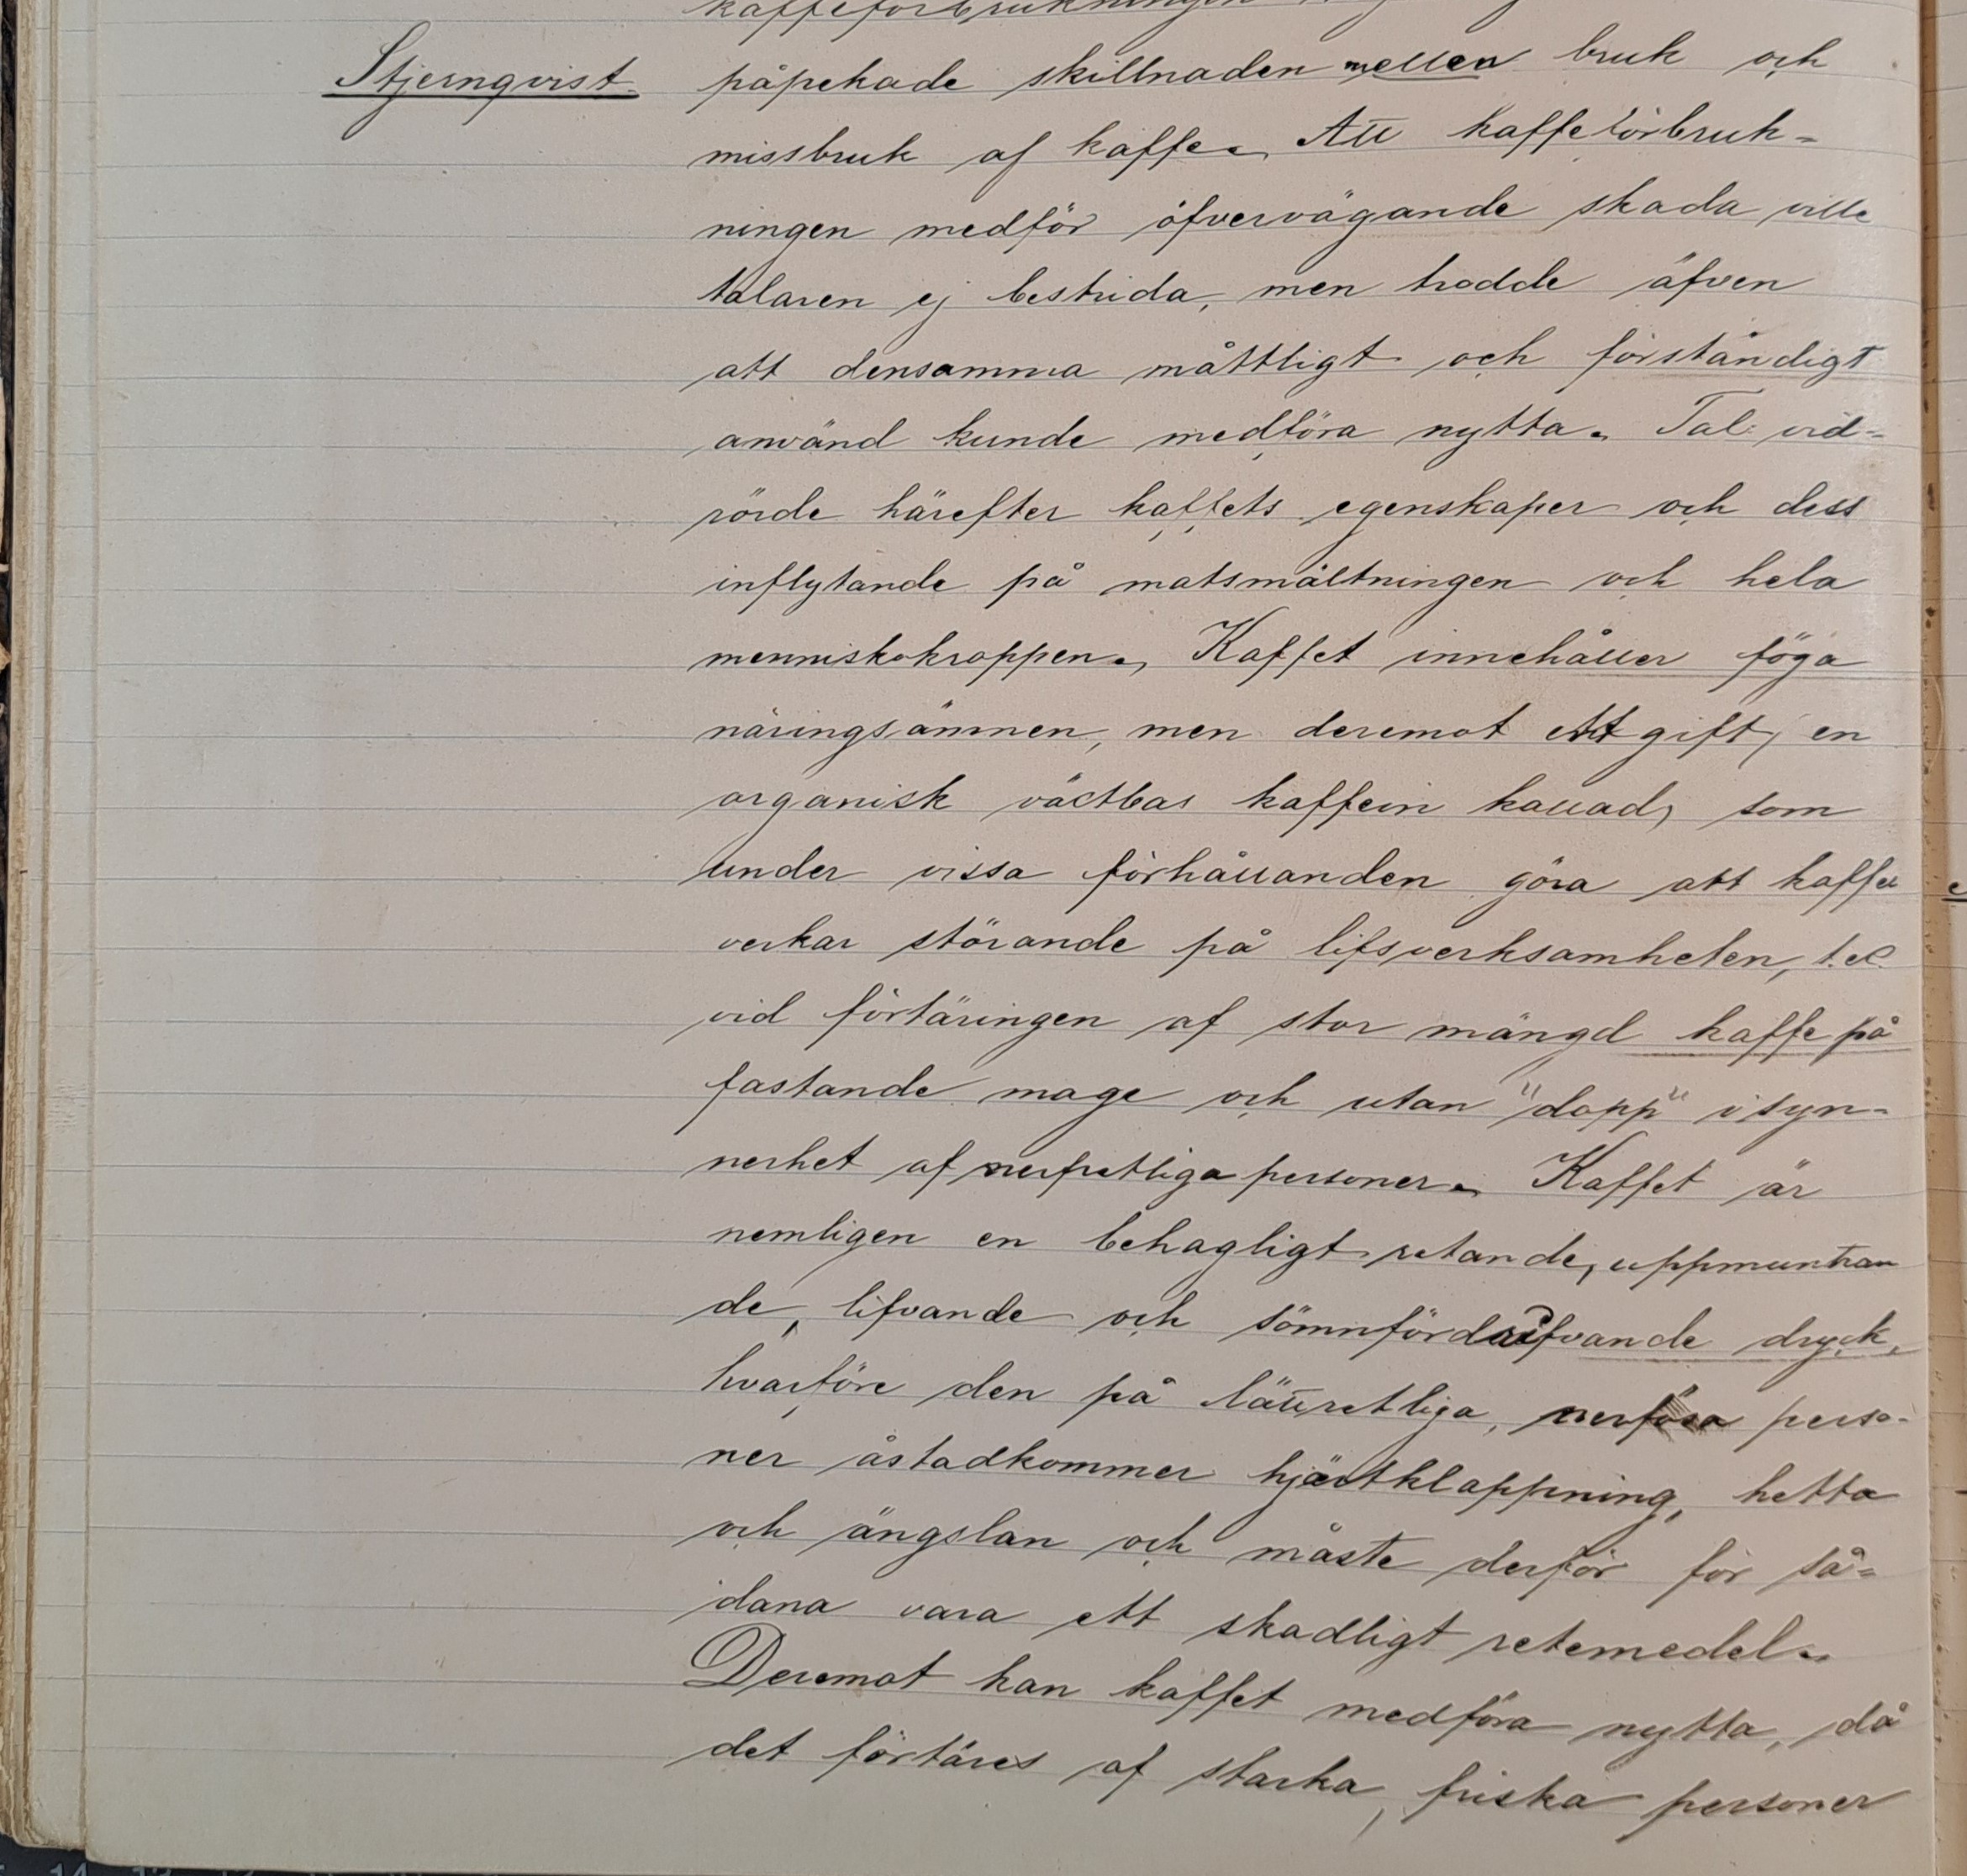 kaffeförbrukningen
Stjernqvist. påpekade skillnaden mellan bruk och
missbruk af kaffe. Att kaffeförbruk-
ningen medför öfvervägande skada ville
talaren ej bestrida, men trodde äfven
att densamma måttligt och förståndigt
använd kunde medföra nytta. Tal. vid-
rörde härefter kaffets egenskaper och dess
inflytande på matsmältningen och hela
menniskokroppen. Kaffet innehåller föga
näringsämnen, men deremot ett gift, en
organisk växtbas kaffein kallad, som
under vissa förhållanden göra att kaffet
verkar störande på lifsverksamheten, t.ex.
vid förtäringen af stor mängd kaffe på
fastande mage och utan "dopp" isyn-
nerhet af nerfretliga personer. Kaffet är
nemligen en behagligt retande, uppmuntran
de, lifvande och sömnfördrifvande dryck,
hvarföre den på lättretliga, nerfösa perso-
ner åstadkommer hjärtklappning, hetta
och ängslan och måste derför för så-
dana vara ett skadligt retemedel.
Deremot kan kaffet medföra nytta, då
det förtäres af starka, friska personer
14 13